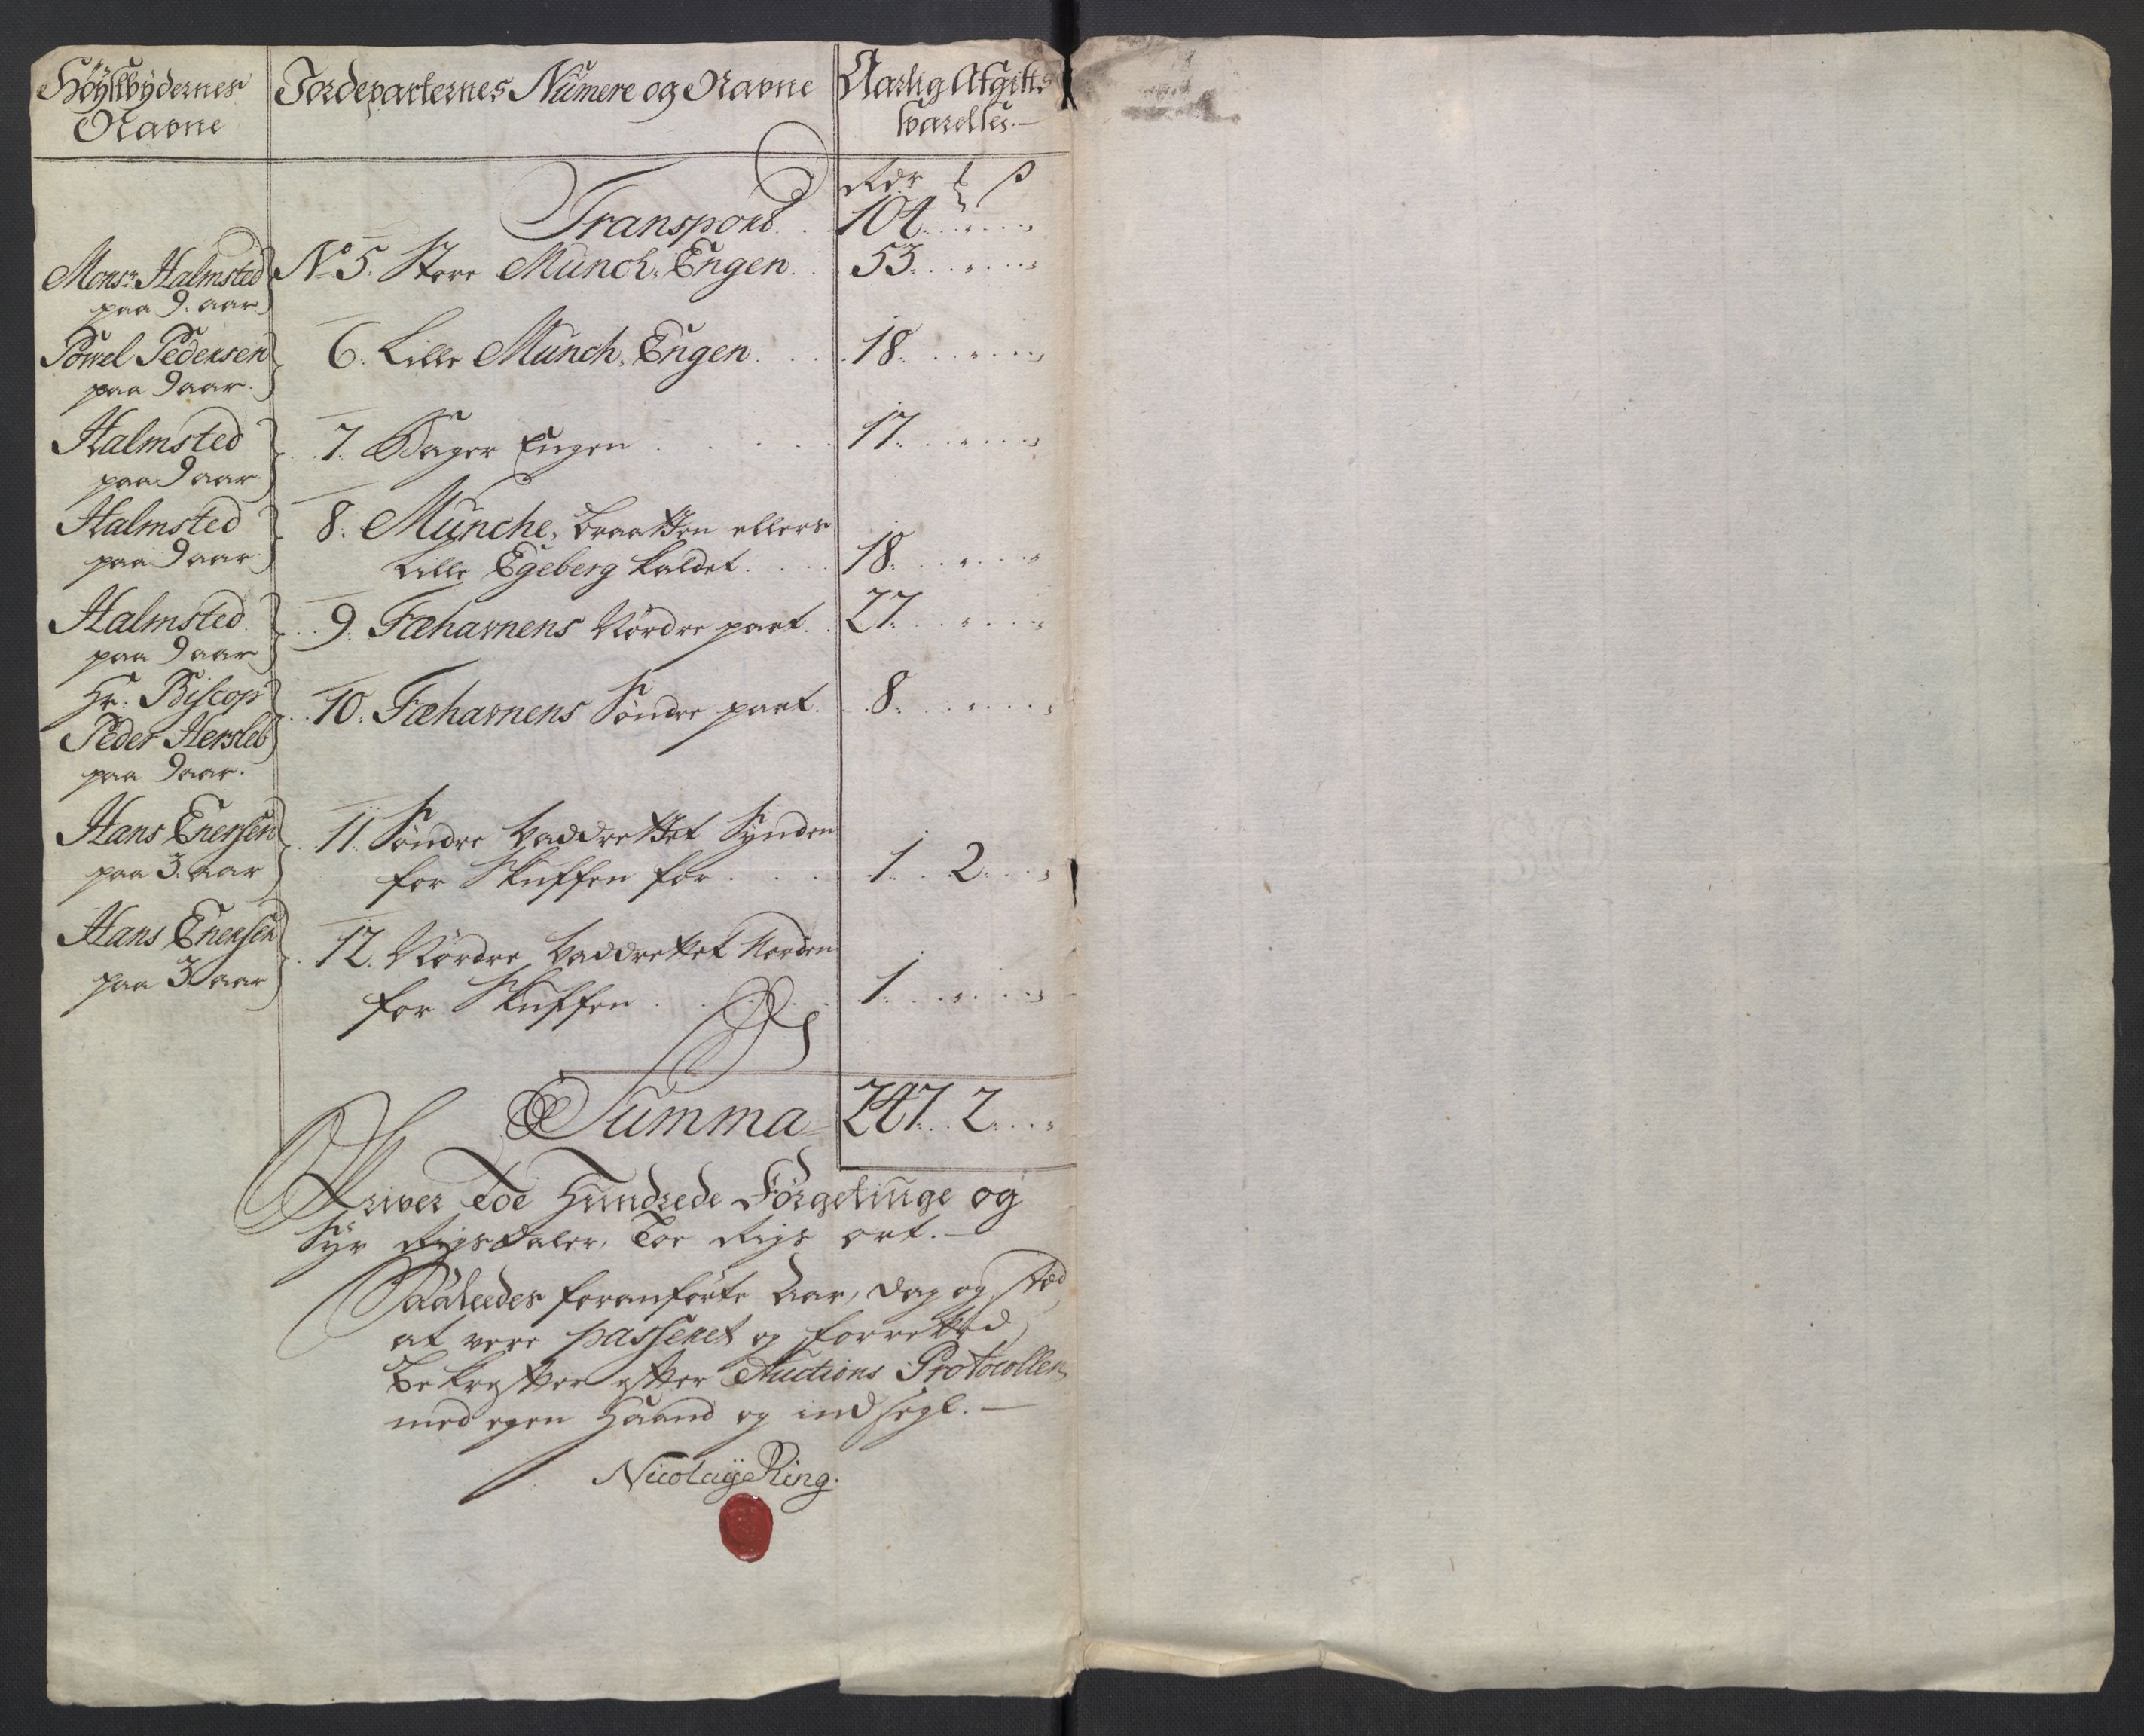 Höystbydernes Navne | Jordeparternes Numere og Navne | Aarlig Afgift svarelles.
Rdr ℔ ß
Transport. . 104. . . „ . . . „
Monsr. Halmsted paa 9. aar } No 5. Store Münch. Engen. . . 53. . . „ . . . „
Powel Pedersen paa 9 aar. } 6. Lille Münch. Engen. . . . 18. . . „ . . . „
Halmsted paa 9 aar } 7. Bager Engen . . . . 17. . . „ . . . „
Halmsted paa 9 aar } 8. Münche, braatten ellers
Lille Egeberg kaldet. . . . 18. . . „ . . . „
Halmsted paa 9 aar } 9. Fæhavnens Nördre part. . 27. . . „ . . . „
Hr. Biscop Peder Hersleb paa 9 aar. } 10. Fæhavnens Söndre part. . 8. . . „ . . . „
Hans Enersen paa 3. aar } 11. Söndre Vaddrettet Synden
for Skuffen for . . . . 1. . 2. . . „
Hans Enersen paa 3 aar } 12. Nördre Vaddrettet Norden
for Skuffen . . . . 1. . . „ . . . „
Summa 247. . 2. . . „
Skriver Toe Hundrede Förgetiuge og
Syv Rigsdaler, Toe Rigs ort.
Saaleedes foranförte Aar, dag og stæd
at være passeret og forretted
bekræfter efter Auctions Protocollen
med egen Haand og indsegl.
Nicolaij Ring.